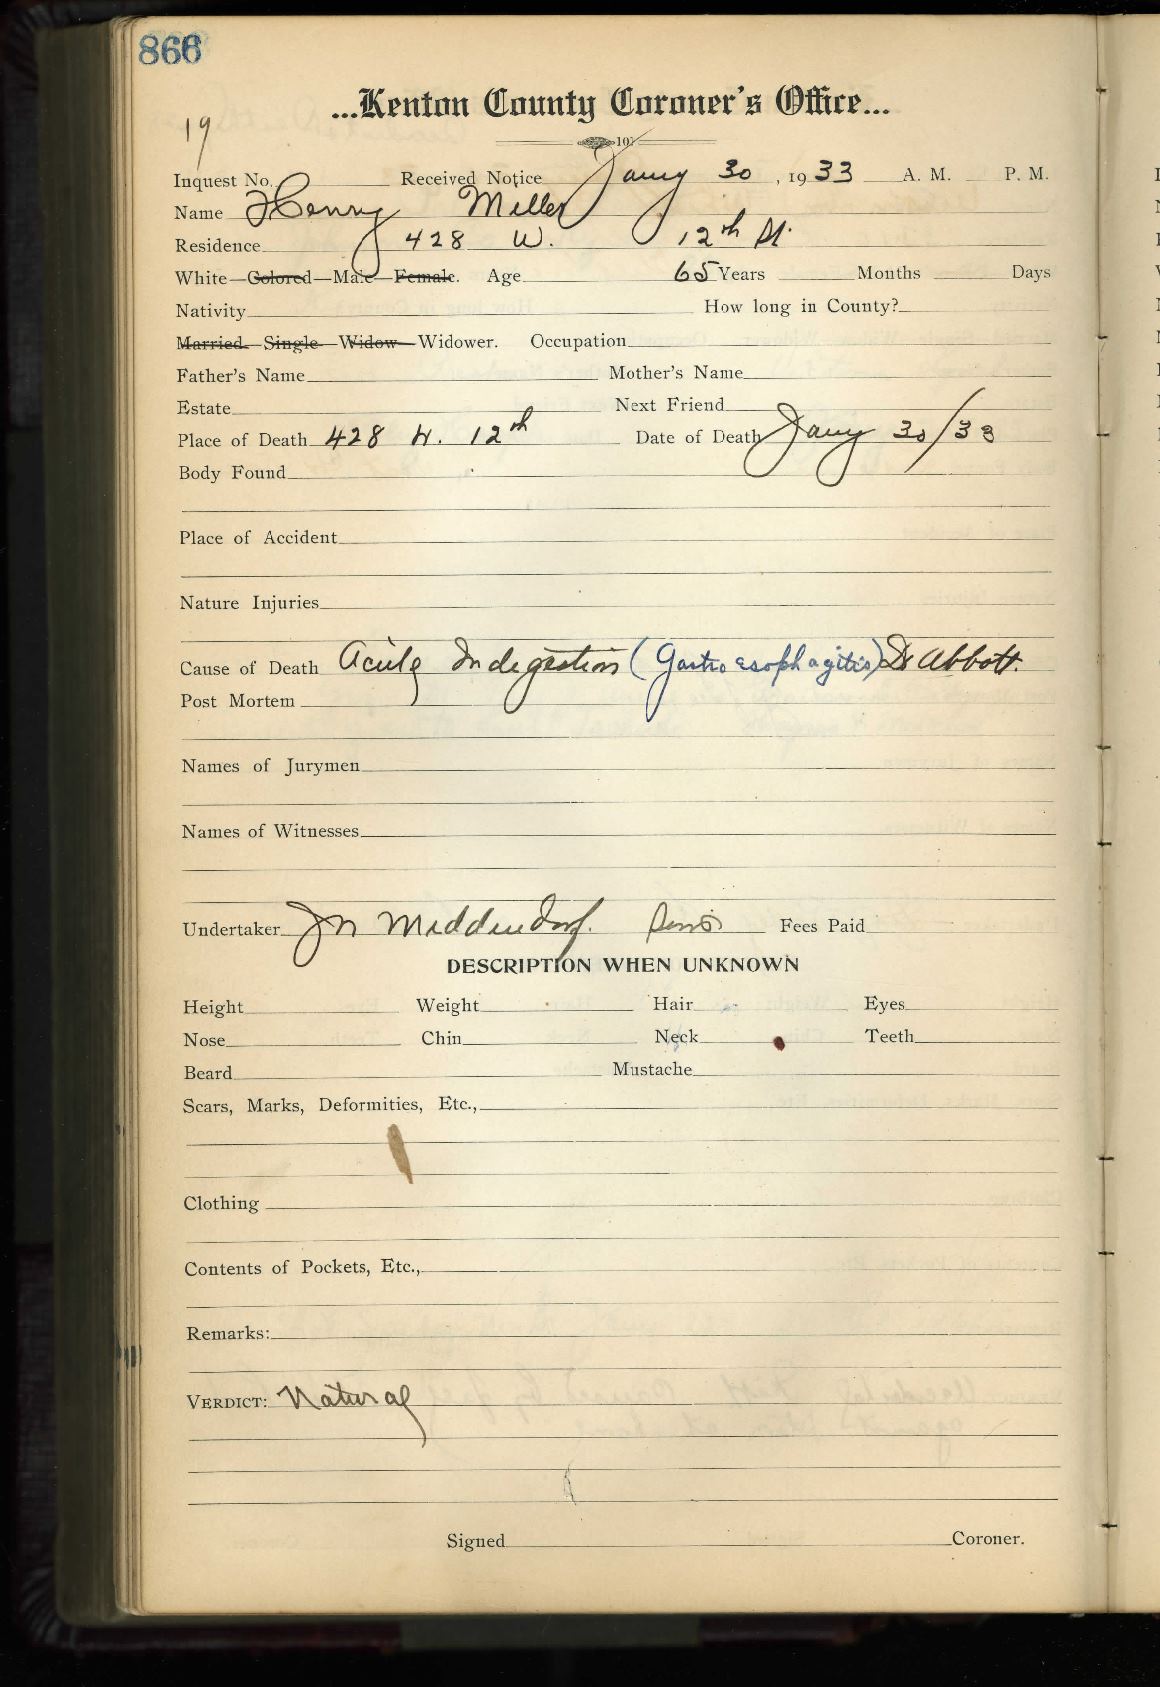 866
...Kenton County Coroner's Office...
19
Inquest No. Received Notice Jany 30, 1933 A. M. P. M.
Name Henry Miller
Residence 428 W. 12th St.
White—Colored—Male—Female. Age 65 Years Months Days
Nativity How long in County?
Married—Single—Widow—Widower. Occupation
Father's Name Mother's Name
Estate Next Friend
Place of Death 428 W. 12th Date of Death Jany 30/33
Body Found
Place of Accident
Nature Injuries
Cause of Death Acute Indigestion (Gastro esophagitis) Dr Abbott.
Post Mortem
Names of Jurymen
Names of Witnesses
Undertaker Jn Middendorf. Sons Fees Paid
DESCRIPTION WHEN UNKNOWN
Height Weight Hair Eyes
Nose Chin Neck Teeth
Beard Mustache
Scars, Marks, Deformities, Etc.,
Clothing
Contents of Pockets, Etc.,
Remarks:
VERDICT: Natural
Signed Coroner.